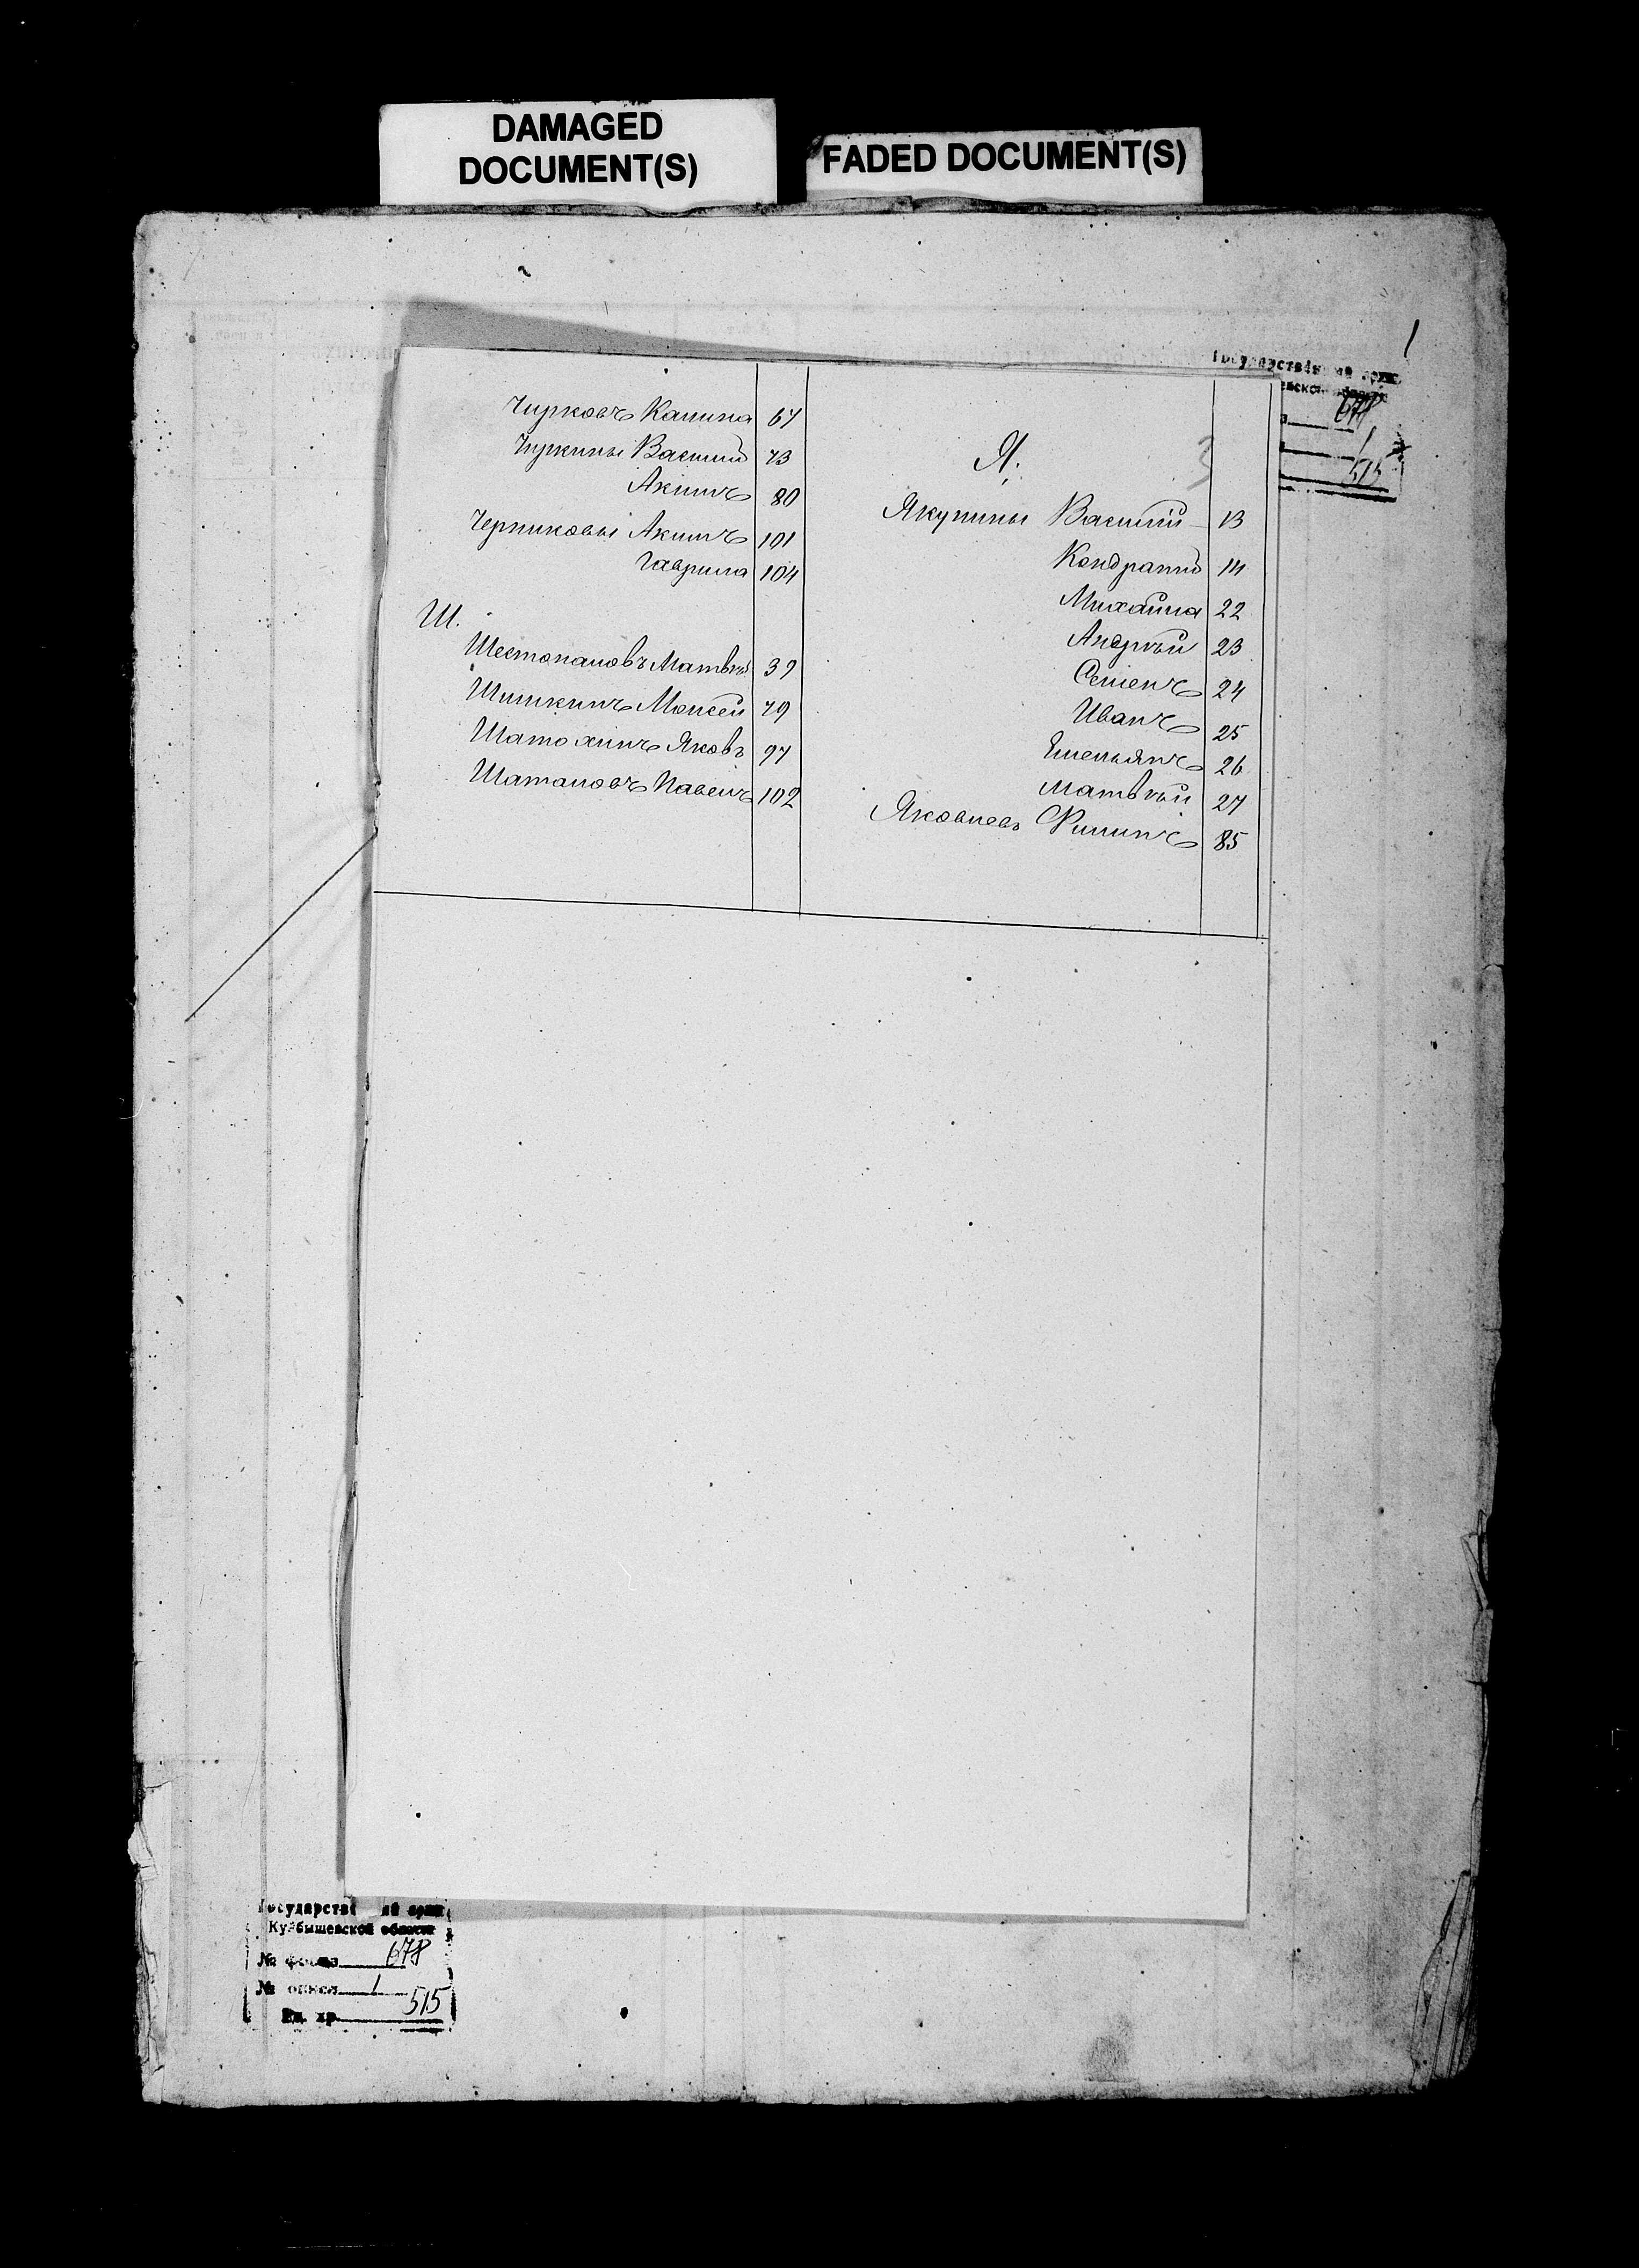 DAMAGED
DOCUMENT(S)
FADED DOCUMENT(S)
1
678
1
515
Чирковъ Калина 67
Чиркины Василий 73
Акимъ 80
Черниковы Акимъ 101
Гаврила 104
Ш.
Шестопаловъ Матвѣй 39
Шишкинъ Моисей 79
Шатохинъ Яковъ 97
Шаталовъ Павелъ 102
Я.
3
Якунины Василій 13
Кондратій 14
Михайла 22
Андрѣй 23
Семенъ 24
Иванъ 25
Емельянъ 26
Матвѣй 27
Яковлевъ Филипъ 85
Государственный архив
Куйбышевской области
№ фонда 678
№ описи 1
Ед. хр. 515